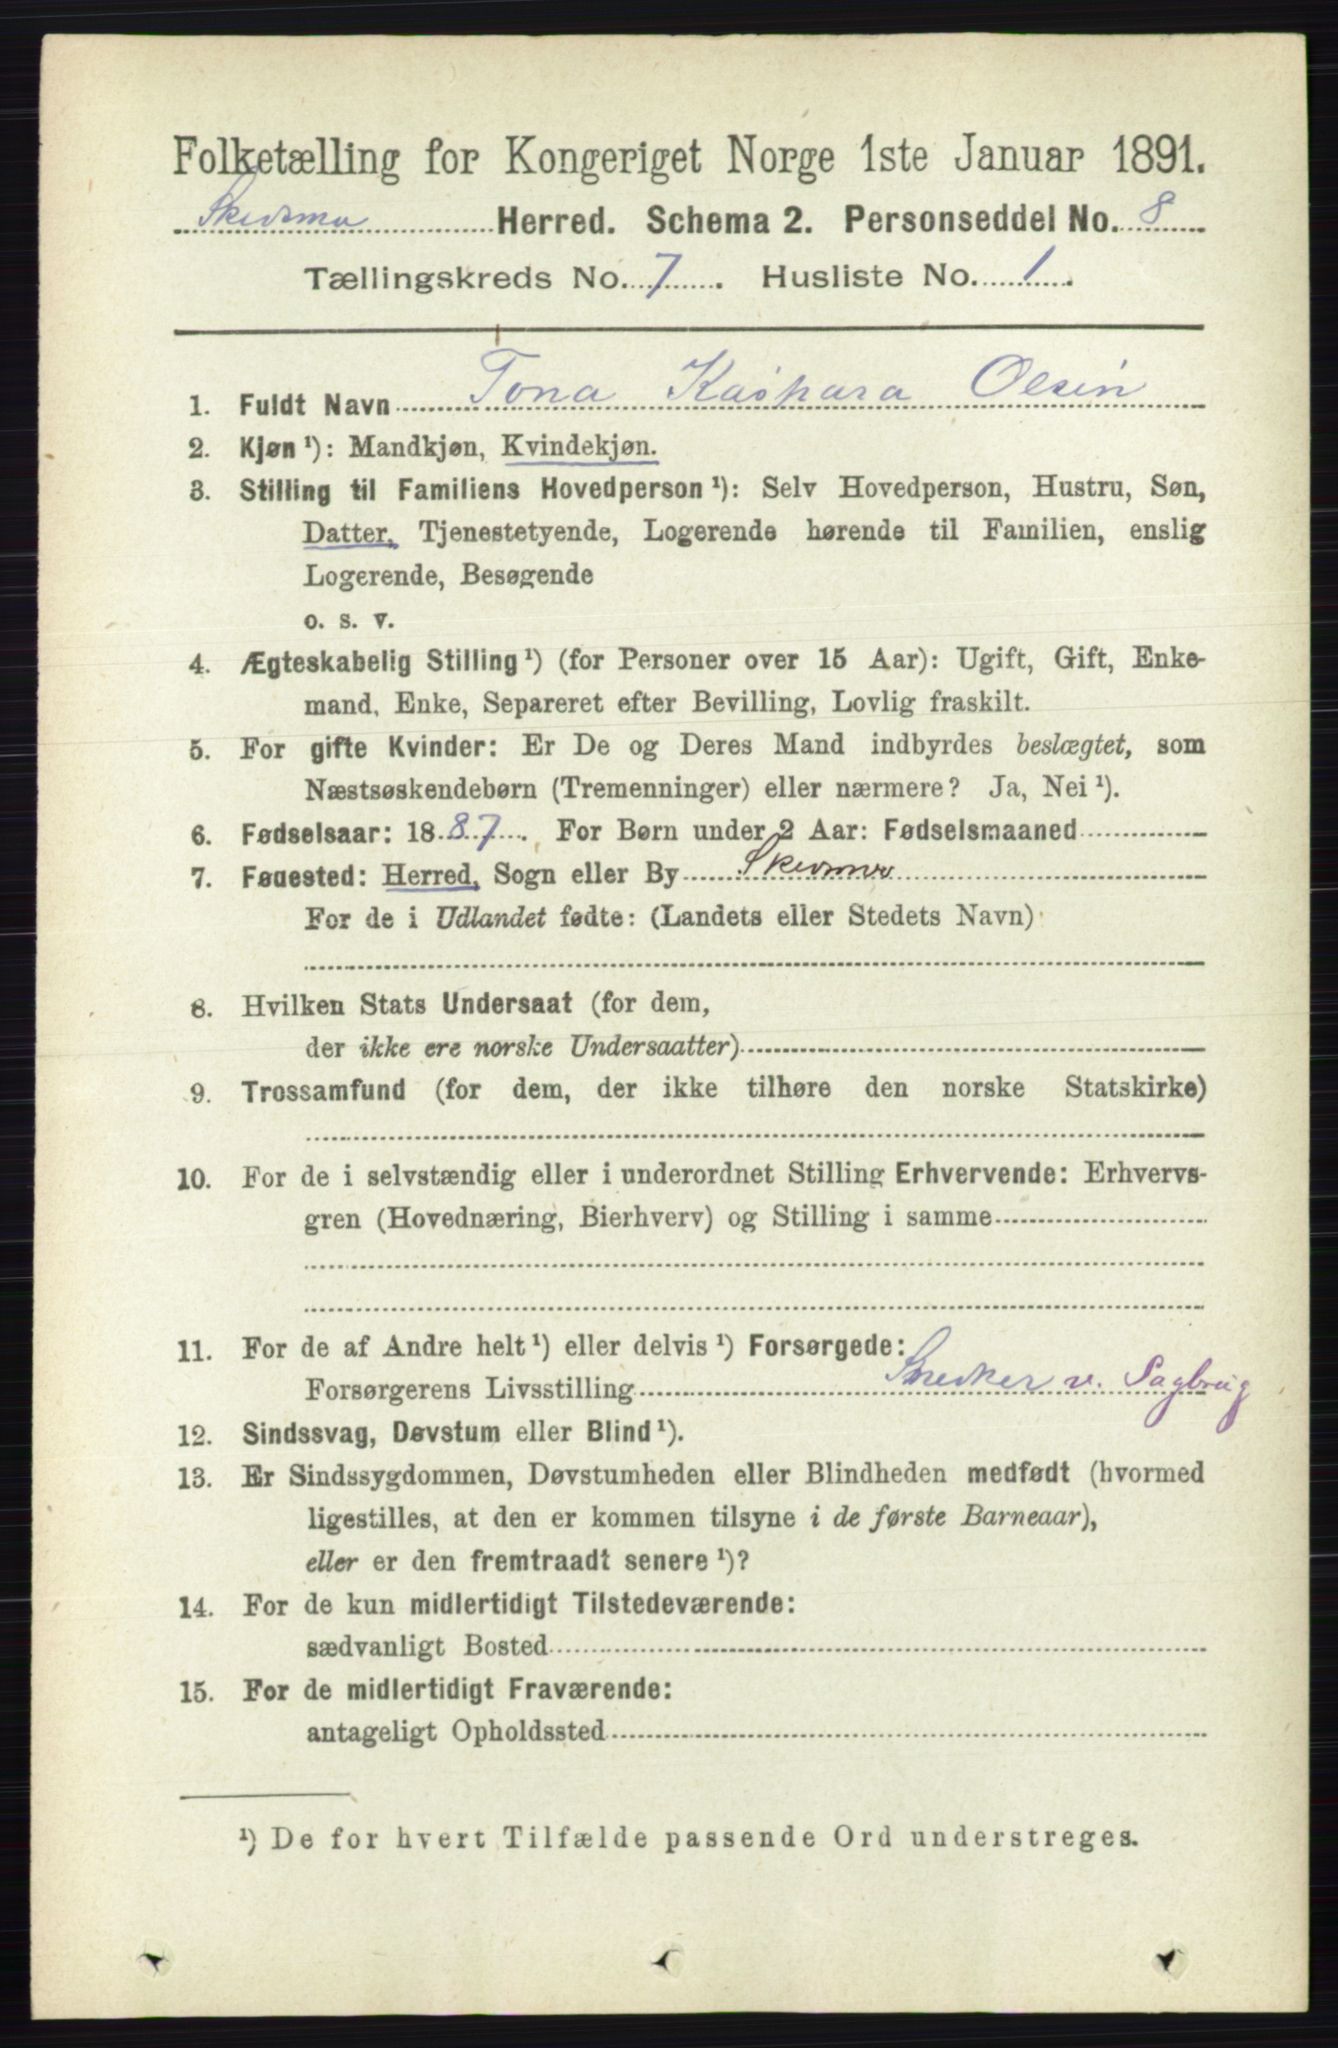 Folketælling for Kongeriget Norge 1ste Januar 1891.
Skedsmo Herred. Schema 2. Personseddel No. 8
Tællingskreds No. 7. Husliste No. 1.
1. Fuldt Navn Tona Kaspara Olsen
2. Kjøn ¹): Mandkjøn, Kvindekjøn.
3. Stilling til Familiens Hovedperson ¹): Selv Hovedperson, Hustru, Søn,
Datter, Tjenestetyende, Logerende hørende til Familien, enslig
Logerende, Besøgende
o. s. v.
4. Ægteskabelig Stilling ¹) (for Personer over 15 Aar): Ugift, Gift, Enke-
mand, Enke, Separeret efter Bevilling, Lovlig fraskilt.
5. For gifte Kvinder: Er De og Deres Mand indbyrdes beslægtet, som
Næstsøskendebørn (Tremenninger) eller nærmere? Ja, Nei ¹).
6. Fødselsaar: 1887. For Børn under 2 Aar: Fødselsmaaned
7. Føuested: Herred, Sogn eller By Skedsmo
For de i Udlandet fødte: (Landets eller Stedets Navn)
8. Hvilken Stats Undersaat (for dem,
der ikke ere norske Undersaatter)
9. Trossamfund (for dem, der ikke tilhøre den norske Statskirke)
10. For de i selvstændig eller i underordnet Stilling Erhvervende: Erhvervs-
gren (Hovednæring, Bierhverv) og Stilling i samme
11. For de af Andre helt ¹) eller delvis ¹) Forsørgede:
Forsørgerens Livsstilling Snedker v. Sagbrug
12. Sindssvag, Døvstum eller Blind ¹).
13. Er Sindssygdommen, Døvstumheden eller Blindheden medfødt (hvormed
ligestilles, at den er kommen tilsyne i de første Barneaar),
eller er den fremtraadt senere ¹)?
14. For de kun midlertidigt Tilstedeværende:
sædvanligt Bosted
15. For de midlertidigt Fraværende:
antageligt Opholdssted
¹) De for hvert Tilfælde passende Ord understreges.